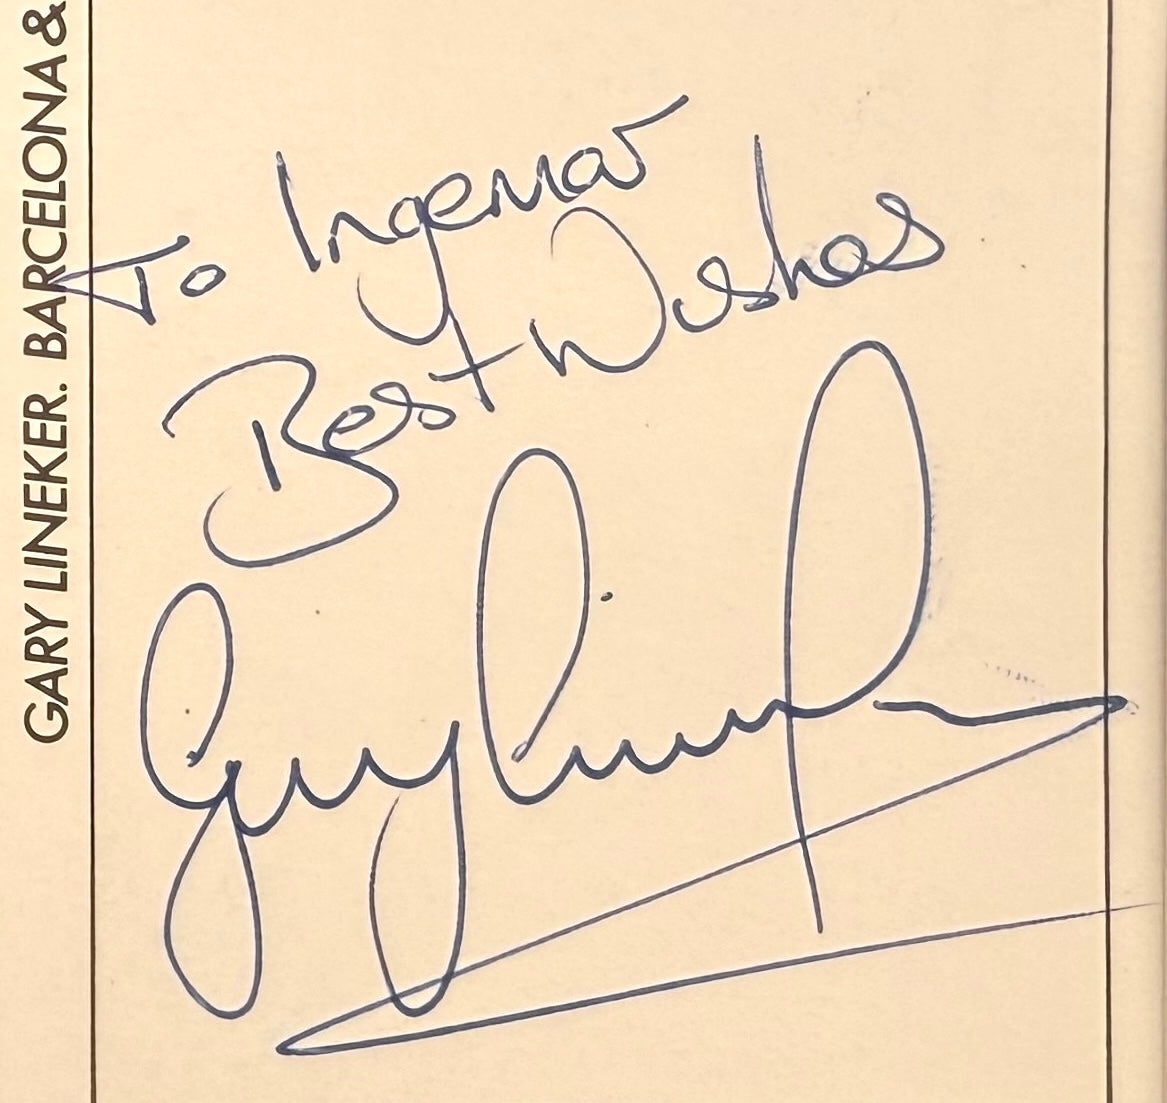 GARY LINEKER. BARCELONA &
To Ingemar
Best Wishes
Gary Lineker